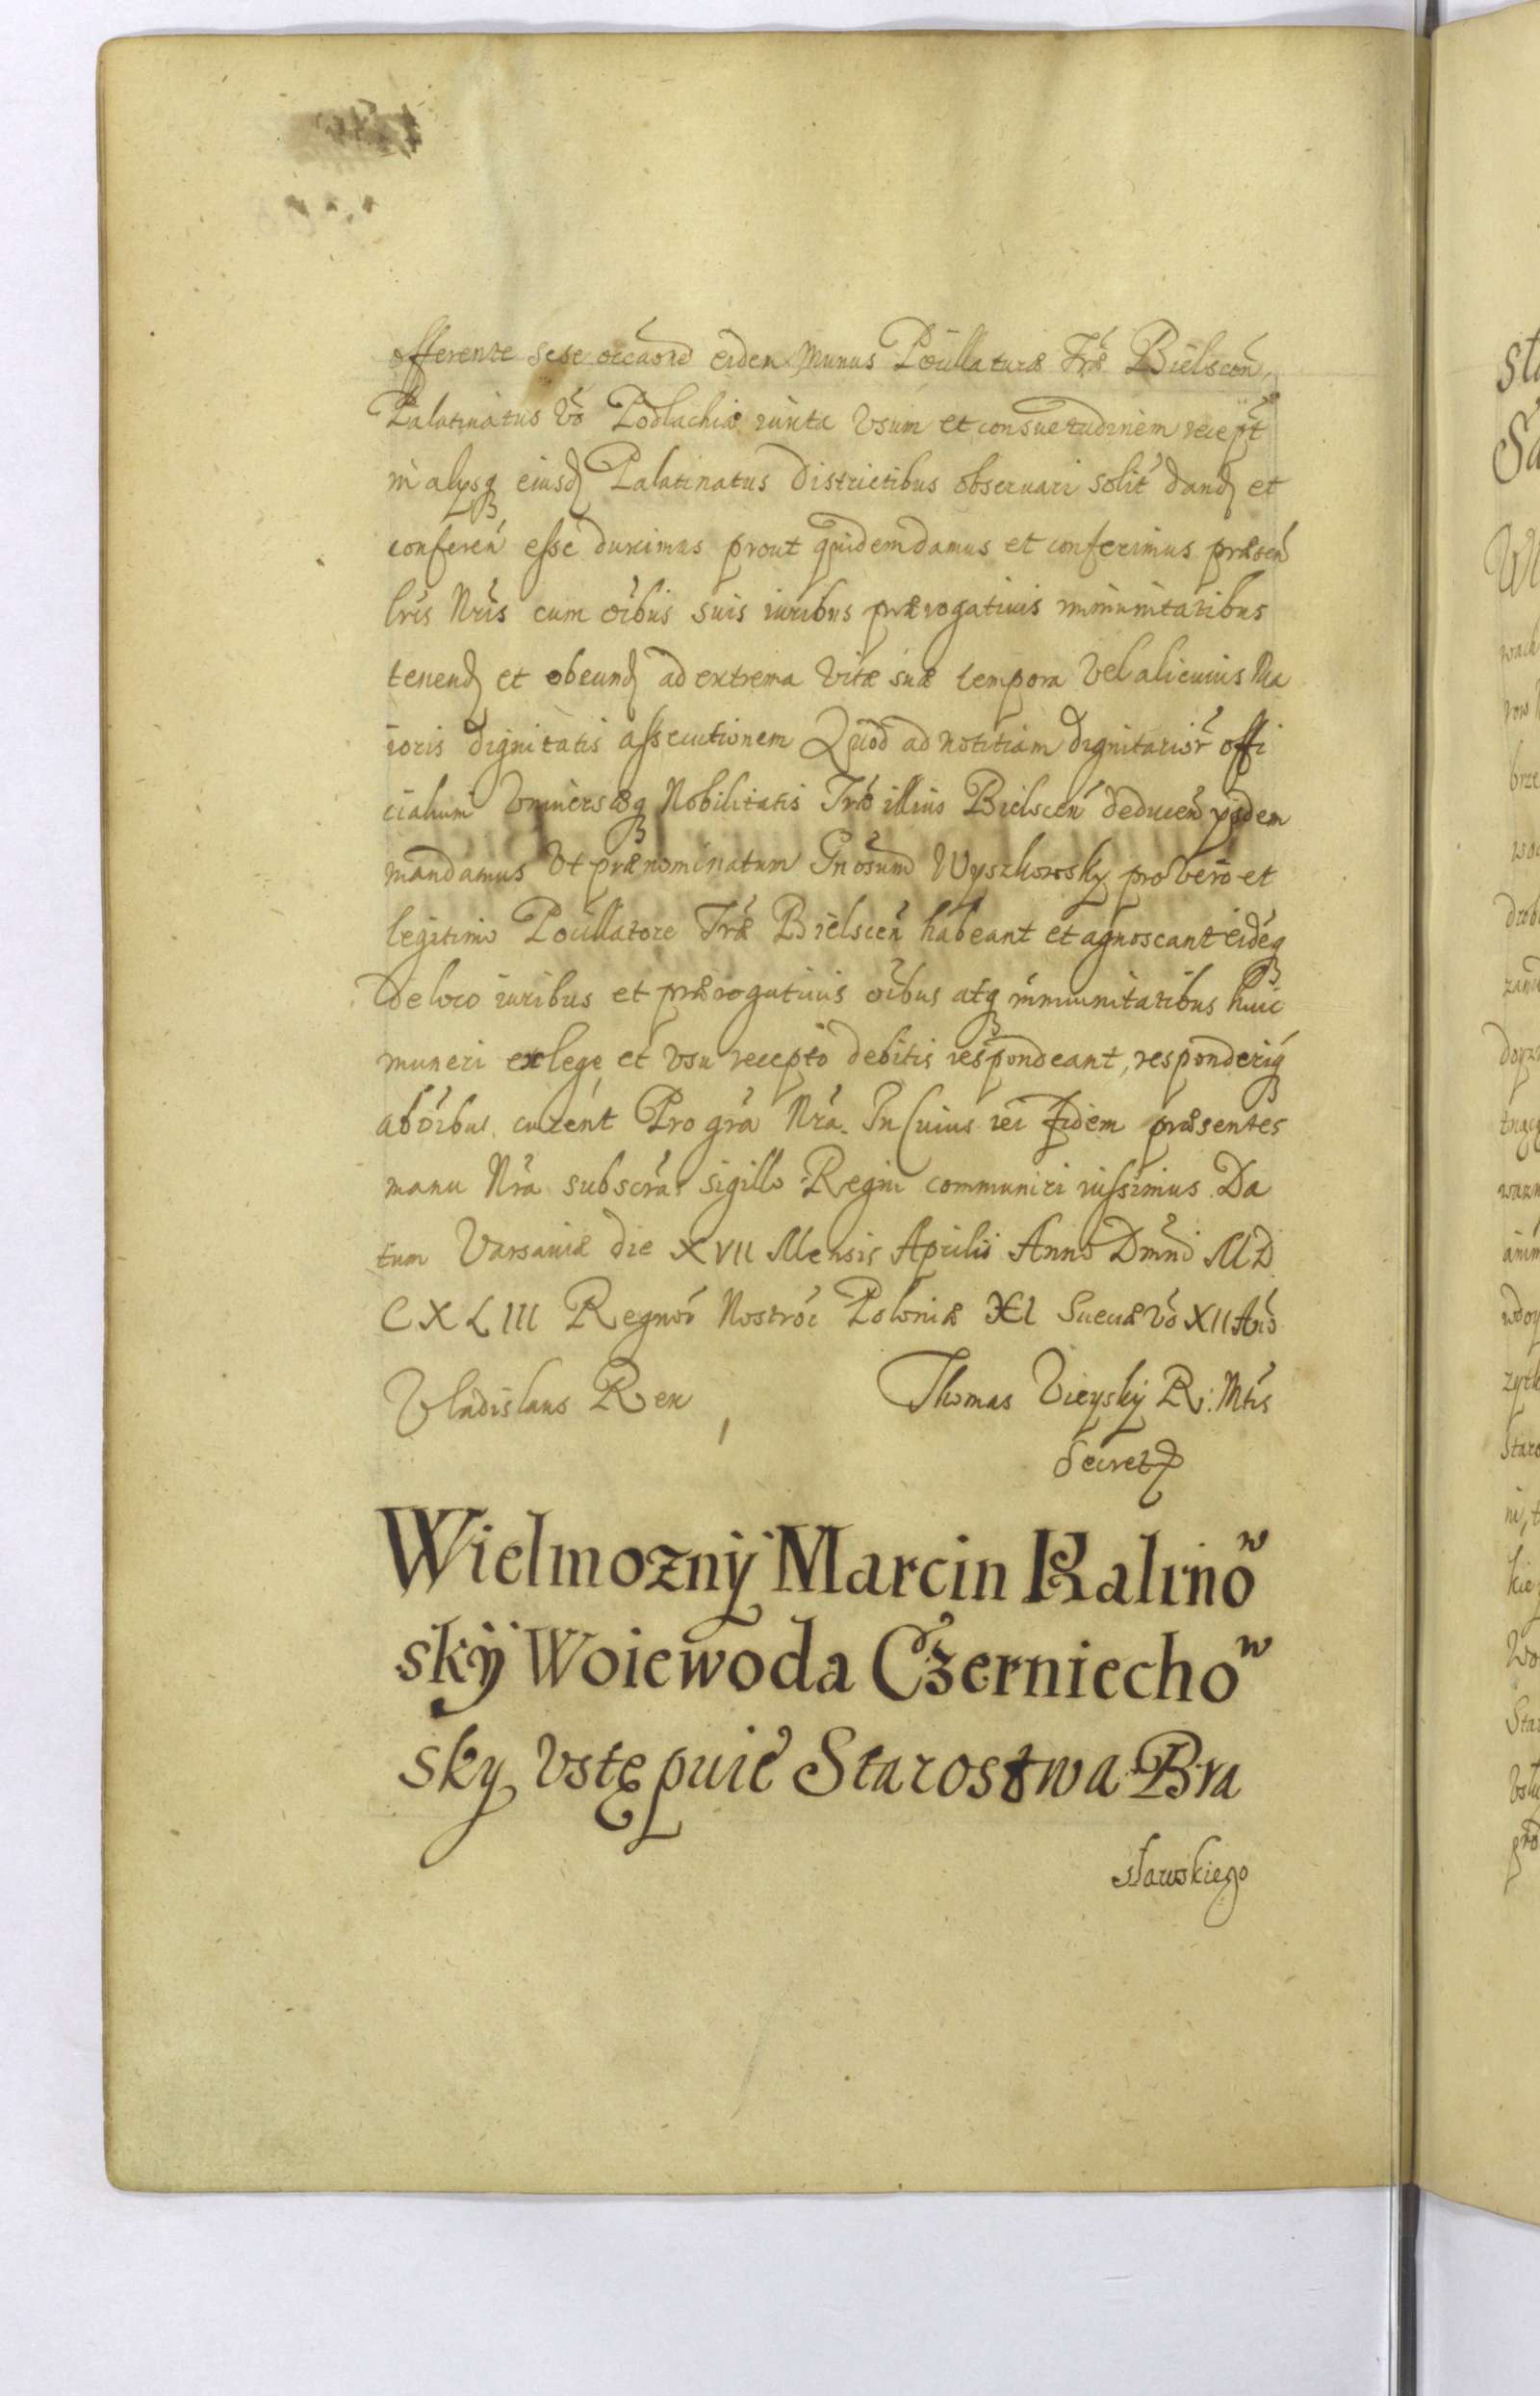 offerente sese occãone eidem Munus Pocillaturæ Træ Bielscen,
Palatinatus Vo Podlachiæ iuxta Vsum et consuetudinem recept
in alysq eiusd Palatinatus Districtibus observari solit dand et
conferen esse duximus prout quidem damus et conferimus præsen
lris Nris cum oibus suis iuribus prærogativis immunitatibus
tenend et obeund ad extrema Vitæ suæ tempora Vel alicuius Ma
ioris dignitatis assecutionem Quod ad notitiam dignitarior offi
cialium Vniversæq Nobilitatis Træ illius Bielscen deducen ysdem
mandamus Vt prænominatum Gnosum Wyszkowsky pro vero et
legitimo Pocillatore Træ Bielscen habeant et agnoscant eideq
de loco iuribus et prærogativis oibus atq immunitatibus huic
muneri ex lege et vsu recepto debitis respondeant, responderiq
ab oibus curent Pro gra Nra. In Cuius rei fidem præsentes
manu Nra subscra sigillo Regni communiri iussimus. Da
tum Varsaviæ die XVII Mensis Aprilis Anno Dmni MD
CXLIII Regnor Nostror Poloniæ XI Sueciæ Vo XII Ano
Vladislaus Rex Thomas Vieysky R: Mtis
Secret
Wielmozny Marcin Kalino w
sky Woiewoda Czerniecho w
sky Vstępuie Starostwa Bra
sławskiego